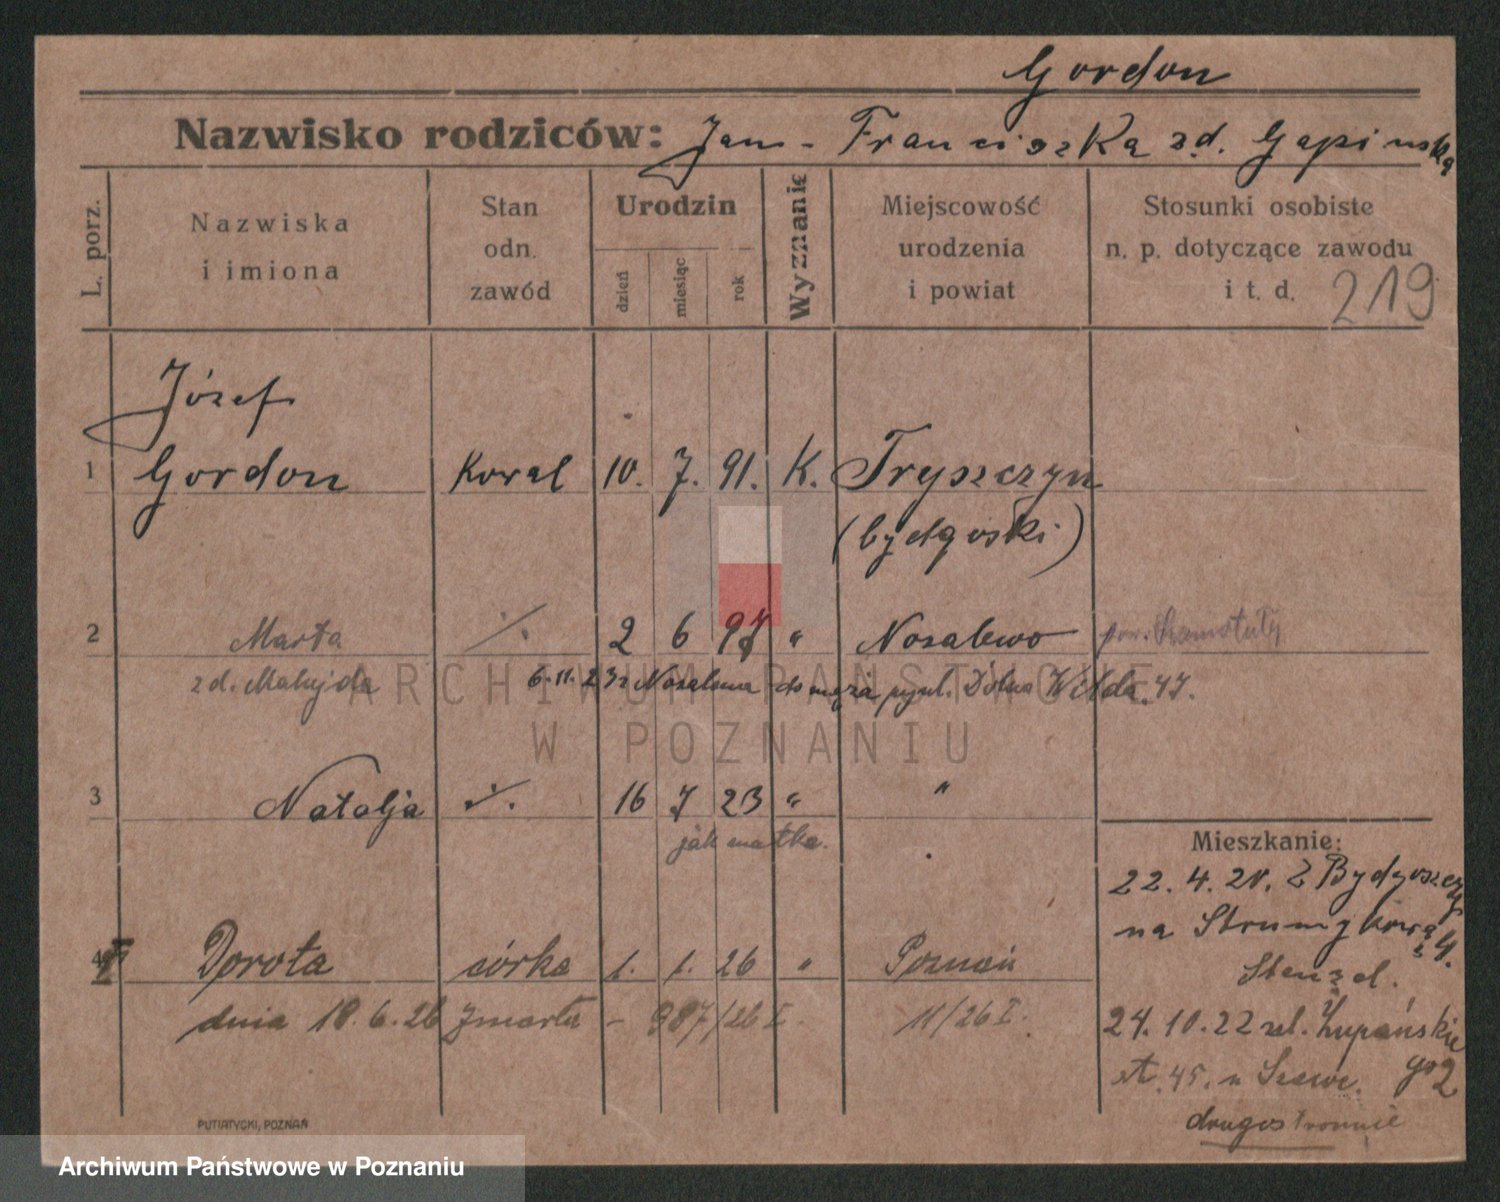 Gordon
Nazwisko rodziców: Jan - Franciszka zd. Gapinska
L. porz.
Nazwiska i imiona
Stan odn. zawód
Urodzin
dzień
miesiąc
rok
Wyznanie
Miejscowość urodzenia i powiat
Stosunki osobiste n. p. dotyczące zawodu i t. d.
219
Józef
1 Gordon Kowal 10. 7. 91. K. Tryszczyn
(bydgoski)
2 Marta ./. 2 6 97 " Nosalewo pow. Szamotuły
zd. Matujda 6.11.23 z Nosalewa do męża przy ul. Dolna Wilda 47.
3 Natalja ./. 16 7 23 " "
jak matka.
Mieszkanie:
22. 4. 20. Z Bydgoszczy
na Strumykową 4.
4 Dorota córka 1. 1. 26 " Poznań
dnia 18.6.26 zmarła - 987/26 I. 11/26 I.
24. 10. 22 ul. Żupańskiego 2
st. 45. u Szewc.
drugostronnie
PUTIATYCKI, POZNAŃ
ARCHIWUM PAŃSTWOWE
W POZNANIU
Archiwum Państwowe w Poznaniu